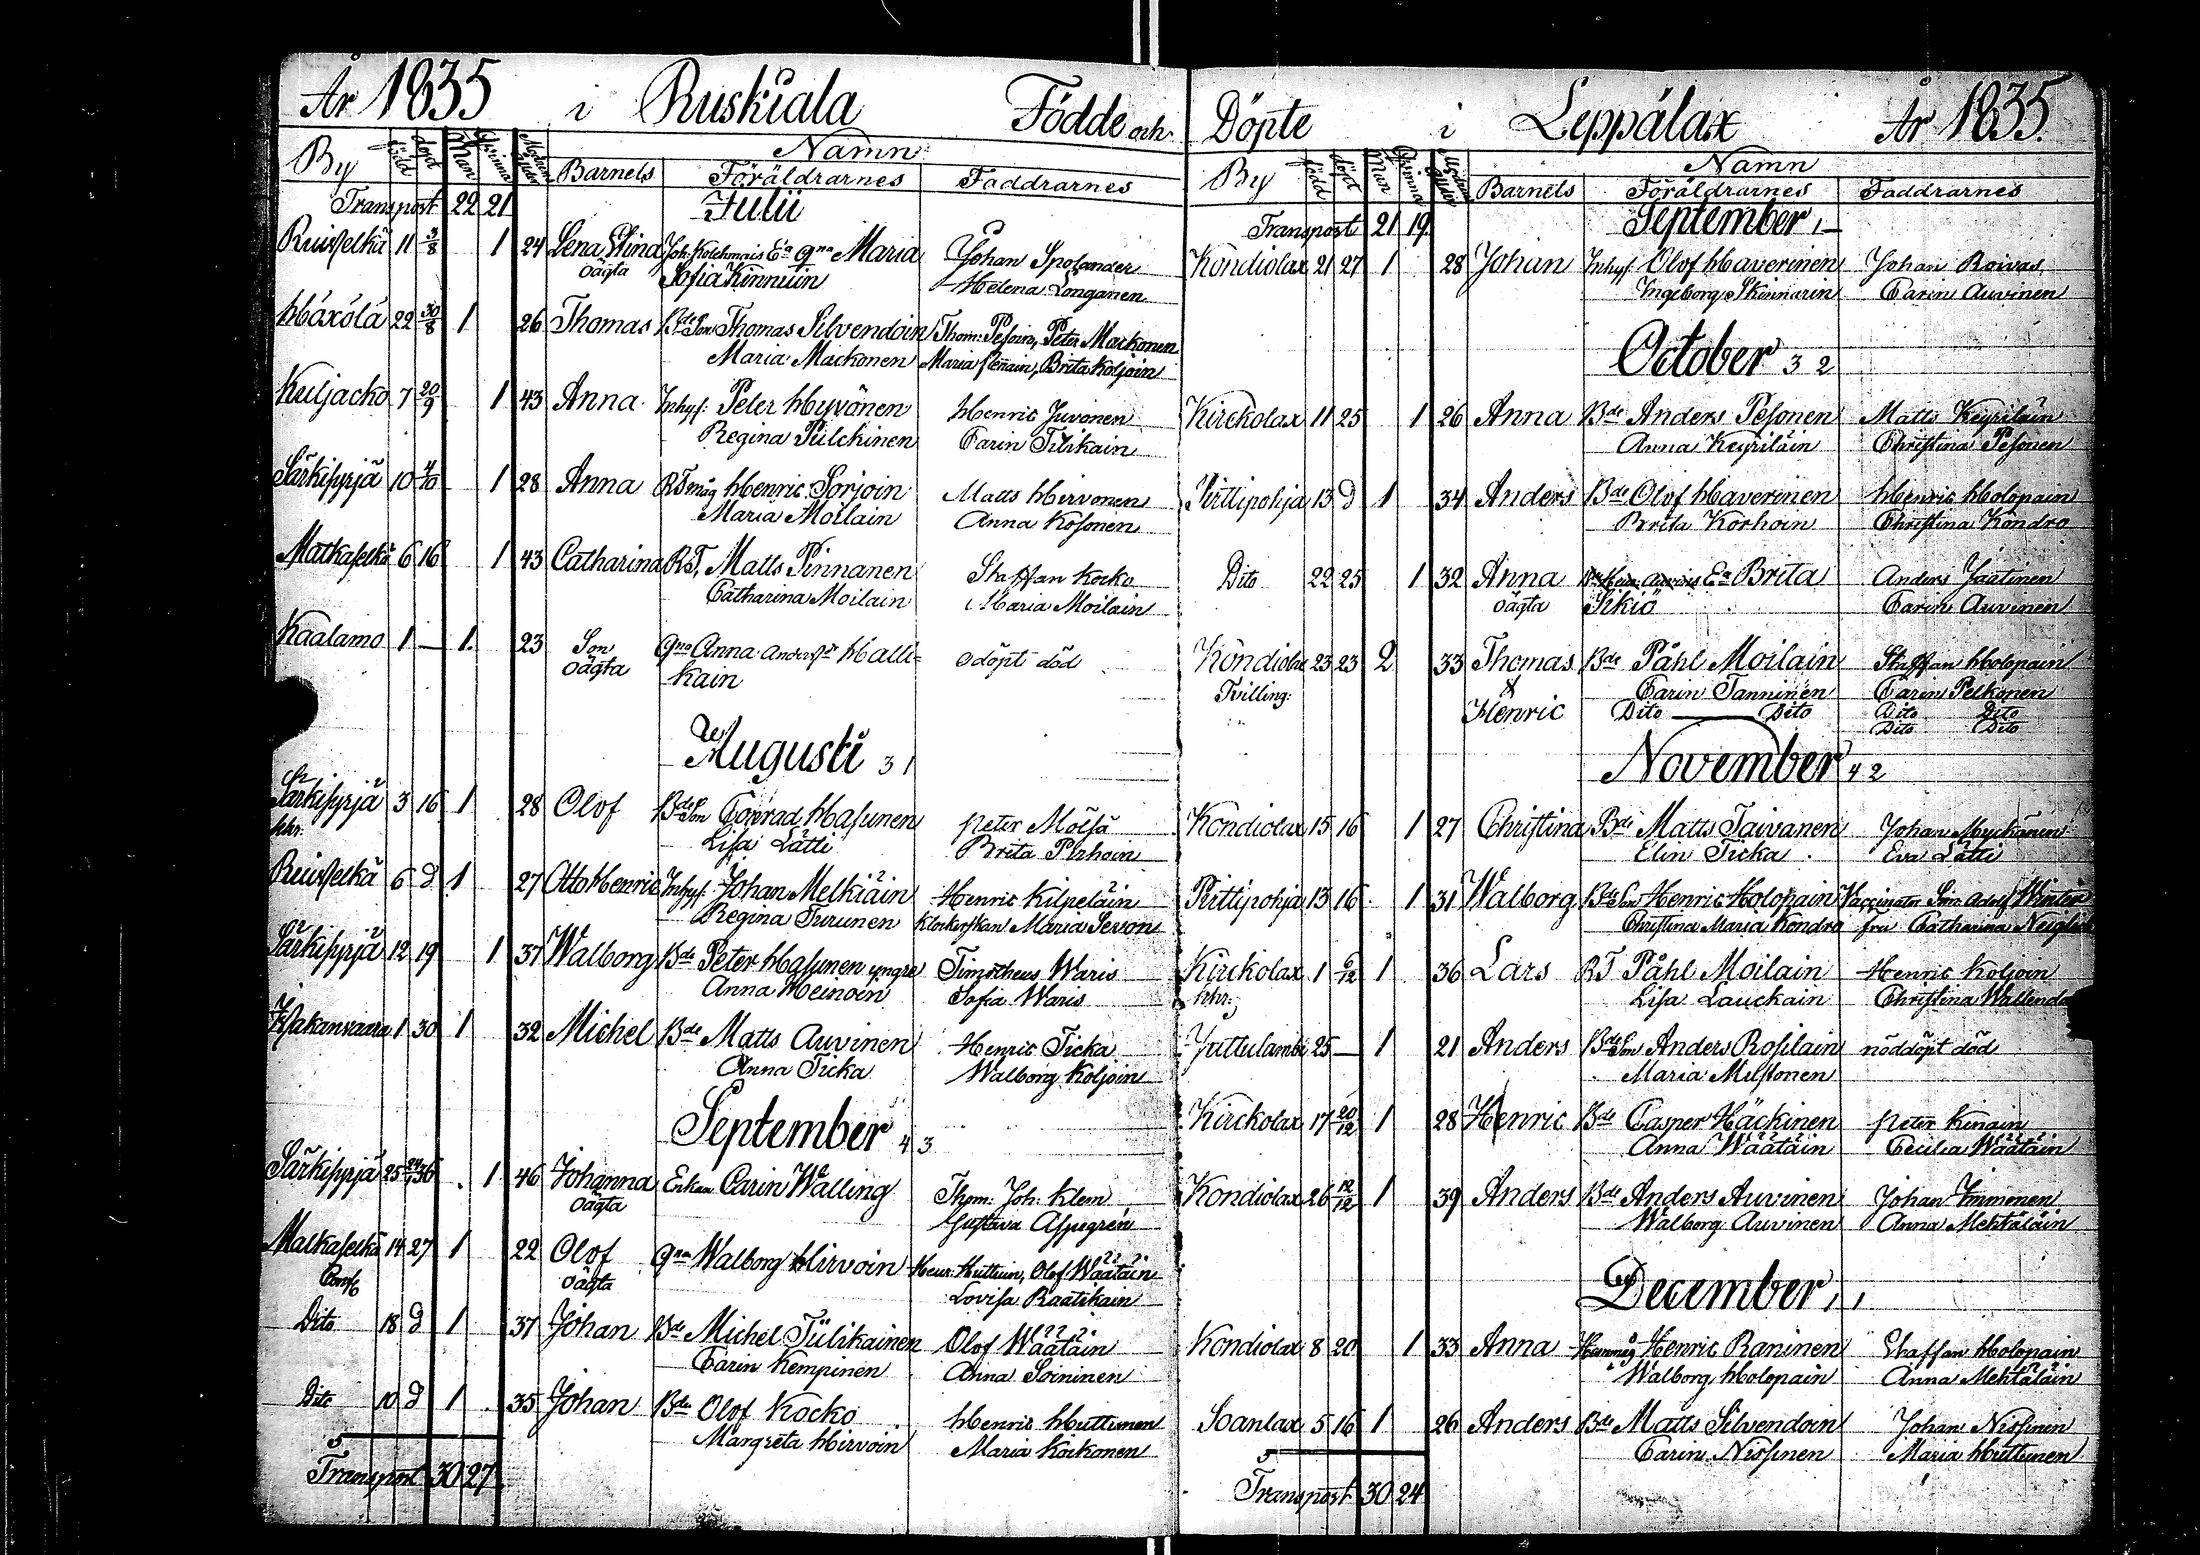 År 1835 i Ruskiala Födde och
Namn
By född döpt Man Qvinna Modrens Ålder Barnets Föräldrarnes Faddrarnes
Transport 22 21 Julii
Ruisselkä 11 3/8 1 24 Lena Stina Maria Johan
oägta Sofia Kinnuin Helena Longanen
Häxölä 22 30/8 1 26 Thomas Bde Son Thomas Silvendoin Thom: Pesoin, Peter Mackonen
Maria Mackonen Maria Brita Koljoin
Kuljacko 7 20/9 1 43 Anna Inhys: Peter Hyvönen Henric Juvonen
Regina Pulckinen Carin Tilikain
Särkisyrjä 10 4/10 1 28 Anna RT måg Henric Sorjoin Matts Hirvonen
Maria Moilain Anna Kosonen
Matkaselkä 6 16 1 43 Catharina RT, Matts Pinnanen Staffan Kocko
Catharina Moilain Maria Moilain
Kaalamo 1 — 1. 23 Son Qna Anna Halli-
oägta kain
odöpt död
Augusti 3 1
Särkisyrjä 3 16 1 28 Olof Bde Son Conrad Hasunen Peter Mölsä
Lisa Lätti Brita Pirhoin
Ruisselkä 6 d 1 27 Otto Henric Inhys: Johan Melkiäin Henric Kilpeläin
Regina Turunen Klockarskan Maria Sevon
Särkisyrjä 12 19 1 37 Walborg Bde Peter Hasunen yngre Timotheus Waris
Anna Heinoin Sofia Waris
1 30 1 32 Michel Bde Matts Auvinen Henric Ticka
Anna Ticka Walborg Koljoin
September 4 3
Särkisyrjä 25 1 46 Johanna Enkan Carin Walling Thom: Joh: Klem
oägta Gustava Aspegren
Matkaselkä 14 27 1 22 Olof Qna Walborg Hirvoin Henr: Huttuin, Olof Wäätäin
oägta Lovisa Raatikain
Dito 18 d 1 37 Johan Bde Michel Tulikainen Olof Wäätäin
Carin Kempinen Anna Soininen
Dito 10 d 1 35 Johan Bde Olof Kocko Henric Huttunen
Margreta Hirvoin Maria Koikonen
Transport 30 27
Döpte i Leppälax År 1835.
Namn
By född döpt Man Qvinna Modrens Ålder Barnets Föräldrarnes Faddrarnes
Transport 21 19. September 1 —
Kondiolax 21 27 1 28 Johan Inhys: Olof Haverinen Johan Roivas
Ingeborg Skinnarin Carin Auvinen
October 3 2
Kirckolax 11 25 1 26 Anna Bde Anders Pesonen Matts Keyriläin
Anna Keyriläin Christina Pesonen
Pirttipohja 13 d 1 34 Anders Bde Olof Haverinen Henric Holopain
Brita Korhoin Christina Kondro
Dito 22 25 1 32 Anna Brita Anders Jaatinen
oägta Sikiö Carin Auvinen
Kondiolax 23 23 2 33 Thomas Bde Påhl Moilain Staffan Holopain
Tvilling: & Carin Tanninen Carin Pelkonen
Henric Dito — Dito Dito Dito
Dito Dito
November 4 2
Kondiolax 15 16 1 27 Christina Bde Matts Taivanen Johan Myckänen
Elin Ticka Eva Lätti
Pirttipohja 13 16 1 31 Walborg Bde Son Henric Holopain Vaccinator Sim: Adolf Winter
Christina Maria Kondro fru Catharina
Kirckolax 1 6/12 1 36 Lars RT Påhl Moilain Henric Koljoin
Lisa Lauckain Christina
Juttulambi 25 — 1 21 Anders Bde Son Anders Rosilain nöddöpt död
Maria Mustonen
Kirckolax 17 20/12 1 28 Henric Bde Casper Häckinen Peter Kinain
Anna Wäätäin Cecilia Wäätäin
Kondiolax 26 12/12 1 39 Anders Bde Anders Auvinen Johan Immonen
Walborg Auvinen Anna Mehtäläin
December 1, 1
Kondiolax 8 20 1 33 Anna Henric Raninen Staffan Holopain
Walborg Holopain Anna Mehtäläin
Soanlax 5 16 1 26 Anders Bde Matts Silvendoin Johan Nissinen
Carin Nissinen Maria Huttunen
Transport 30 24